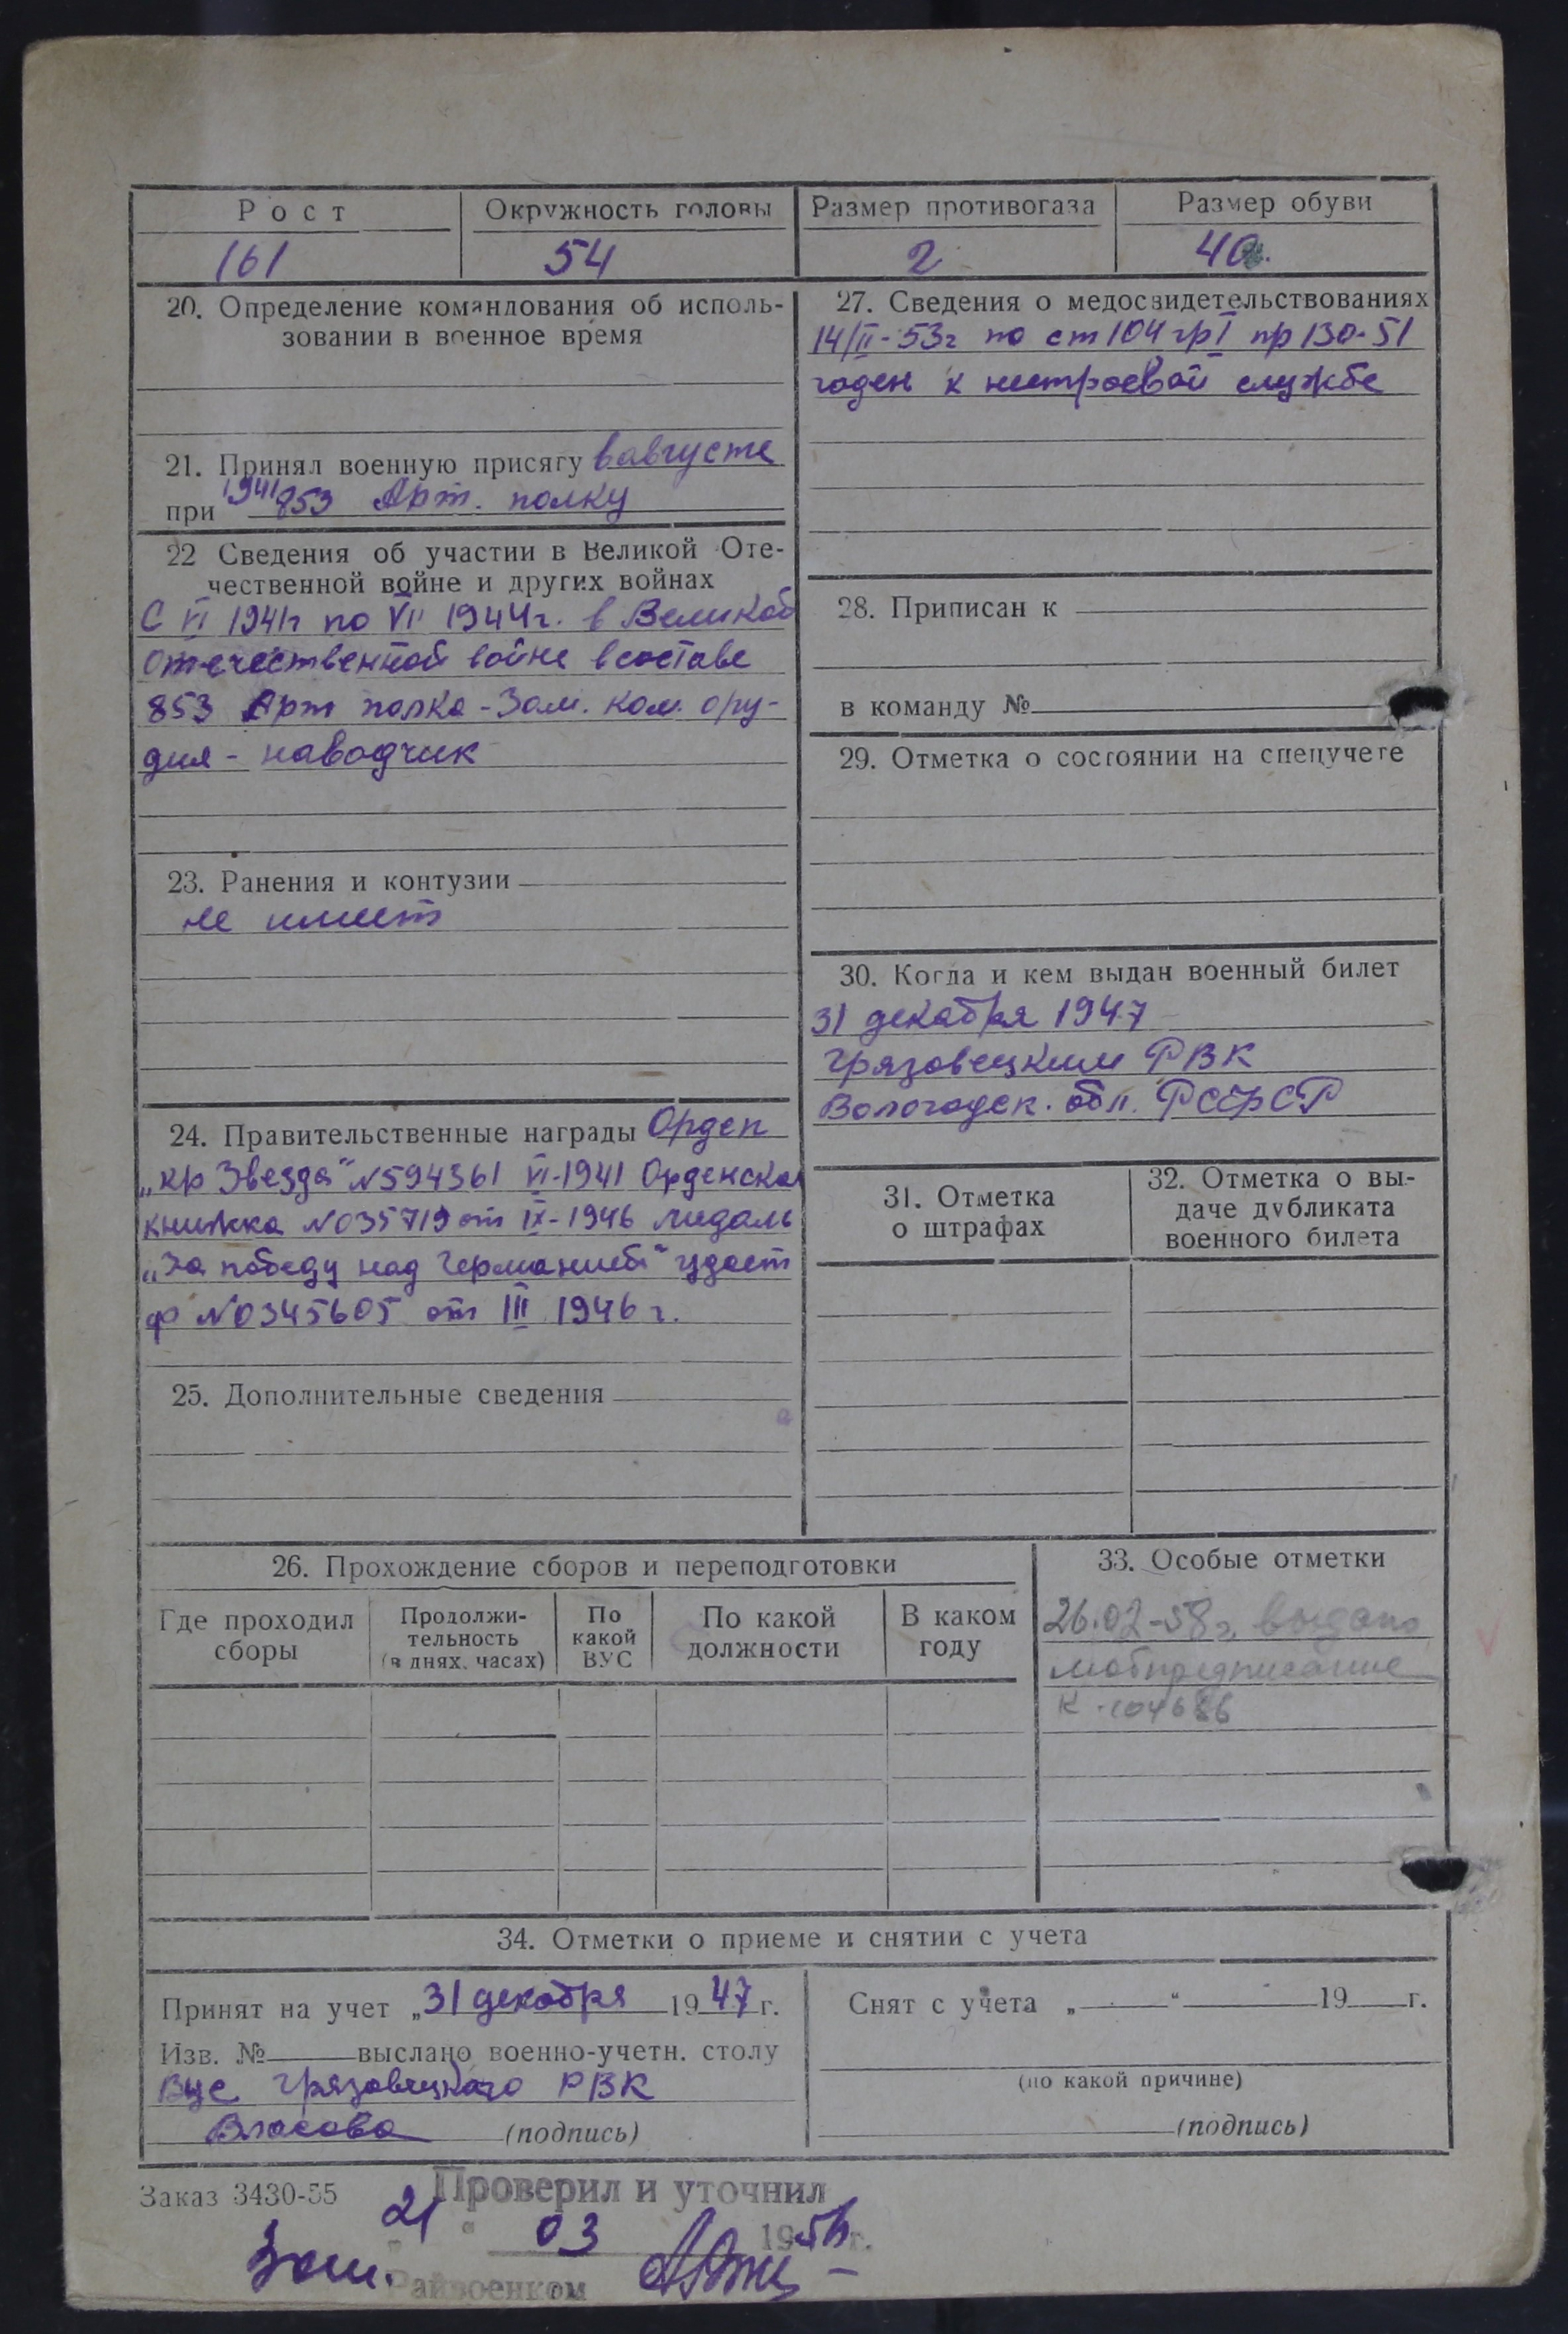 Рост
161
Окружность головы
54
Размер противогаза
2
Размер обуви
40
20. Определение командования об исполь-
зовании в военное время
21. Принял военную присягу в августе
1941
при 853 Арт. полку
22 Сведения об участии в Великой Оте-
чественной войне и других войнах
С VI 1941г по VII 1944г. в Великой
Отечественной войне в составе
853 Арт полка - Зам. ком. ору-
дия - наводчик
23. Ранения и контузии
не имеет
24. Правительственные награды Орден
„кр Звезда" №594361 VI-1941 Орденская
книжка №035719 от IX-1946 медаль
„За победу над Германией" удост
ф №0345605 от III 1946 г.
25. Дополнительные сведения
27. Сведения о медосвидетельствованиях
14/II-53г по ст 104 гр I пр 130-51
годен к нестроевой службе
28. Приписан к
в команду №
29. Отметка о состоянии на спецучете
30. Когда и кем выдан военный билет
31 декабря 1947
Грязовецким РВК
Вологодск. обл. РСФСР
31. Отметка
о штрафах
32. Отметка о вы-
даче дубликата
военного билета
26. Прохождение сборов и переподготовки
Где проходил
сборы
Продолжи-
тельность
(в днях, часах)
По
какой
ВУС
По какой
должности
В каком
году
33. Особые отметки
26.02-58г. выдано
мобпредписание
К-104686
34. Отметки о приеме и снятии с учета
Принят на учет „31 декабря 1947 г.
Изв. № выслано военно-учетн. столу
ВУС Грязовецкого РВК
Власова (подпись)
Снят с учета „ " 19 г.
(по какой причине)
(подпись)
Заказ 3430-55
Проверил и уточнил
21 " 03 1956 г.
Зам. Райвоенком